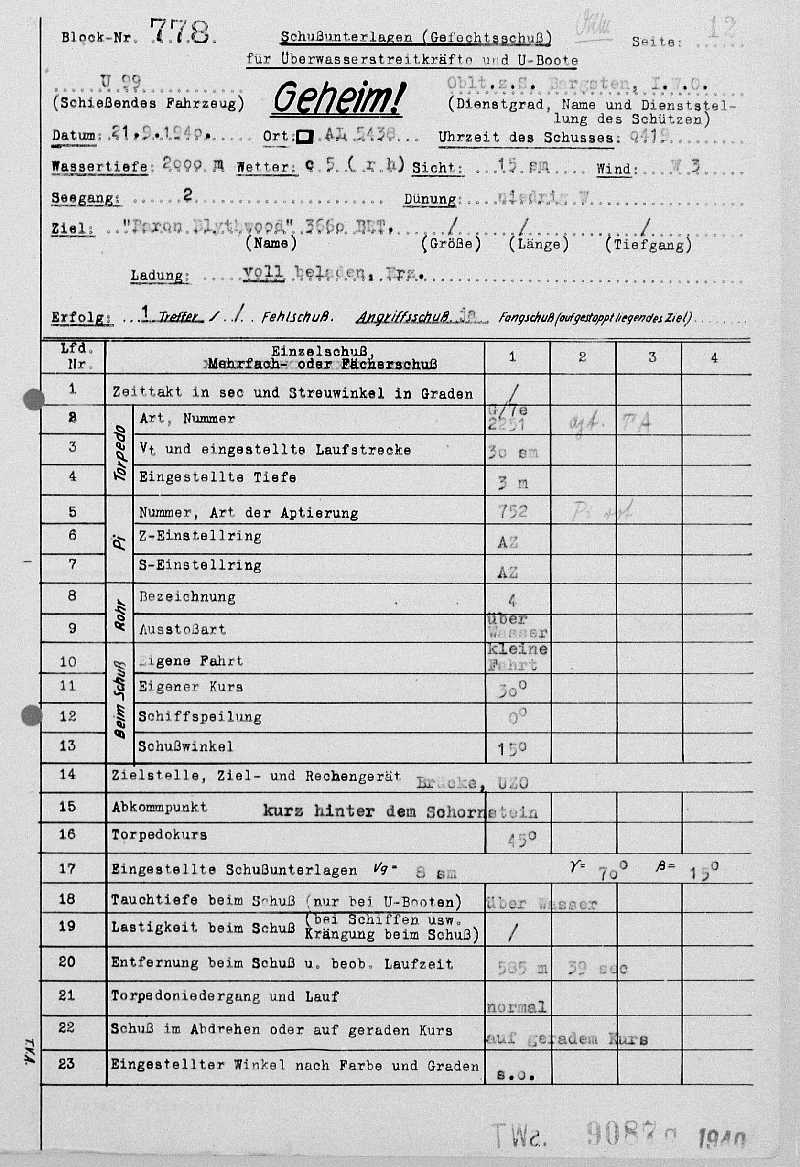 Block-Nr. 778.
Schußunterlagen (Gefechtsschuß)
Seite: 12
für Überwasserstreitkräfte und U-Boote
U 99
Oblt.z.S. Bargsten, I.W.O.
(Schießendes Fahrzeug)
Geheim!
(Dienstgrad, Name und Dienststel-
lung des Schützen)
Datum: 21.9.1940. Ort: AL 5438 Uhrzeit des Schusses: 0419
Wassertiefe: 2000 m Wetter: c 5 (r h) Sicht: 15 sm Wind: W 3
Seegang: 2 Dünung: niedrig W
Ziel: "Baron Blythwood" 3660 BRT. / / /
(Name) (Größe) (Länge) (Tiefgang)
Ladung: voll beladen, Erz.
Erfolg: 1 Treffer / / Fehlschuß. Angriffsschuß ja Fangschuß (auf gestoppt liegendes Ziel)
Lfd. Nr. Einzelschuß, Mehrfach- oder Fächerschuß 1 2 3 4
1 Zeittakt in sec und Streuwinkel in Graden /
Torpedo
2 Art, Nummer G/7e 2251
3 Vt und eingestellte Laufstrecke 30 sm
4 Eingestellte Tiefe 3 m
Pi
5 Nummer, Art der Aptierung 752
6 Z-Einstellring AZ
7 S-Einstellring AZ
Rohr
8 Bezeichnung 4
9 Ausstoßart über Wasser
Beim Schuß
10 Eigene Fahrt kleine Fahrt
11 Eigener Kurs 30°
12 Schiffspeilung 0°
13 Schußwinkel 15°
14 Zielstelle, Ziel- und Rechengerät Brücke, UZO
15 Abkommpunkt kurz hinter dem Schornstein
16 Torpedokurs 45°
17 Eingestellte Schußunterlagen Vg= 8 sm γ= 70° β= 15°
18 Tauchtiefe beim Schuß (nur bei U-Booten) über Wasser
19 Lastigkeit beim Schuß (bei Schiffen usw. Krängung beim Schuß) /
20 Entfernung beim Schuß u. beob. Laufzeit 585 m 39 sec
21 Torpedoniedergang und Lauf normal
22 Schuß im Abdrehen oder auf geraden Kurs auf geradem Kurs
23 Eingestellter Winkel nach Farbe und Graden s.o.
T.V.A.
TWa. 1940